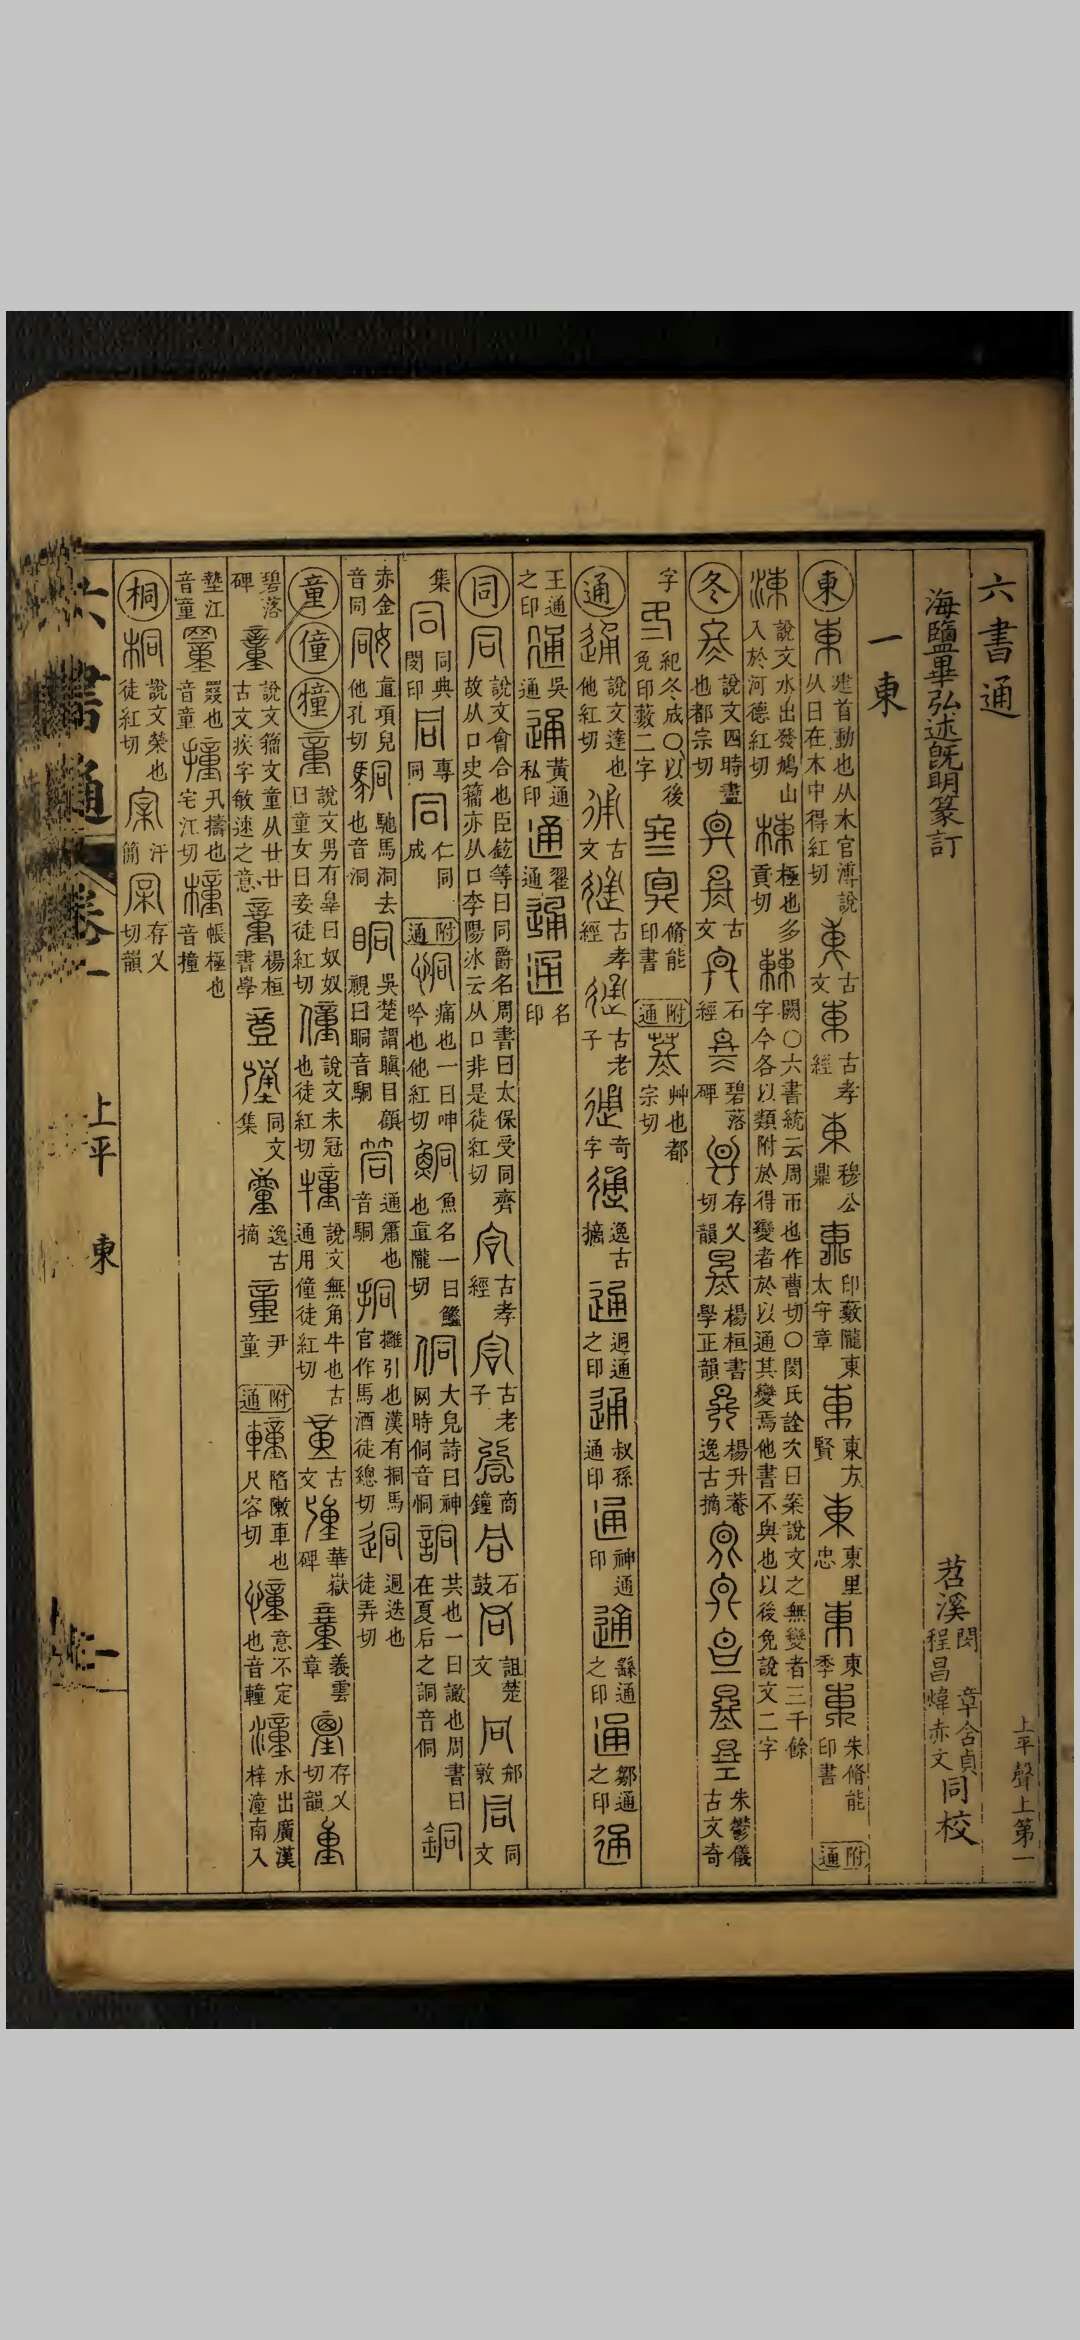 六書通
上平聲上第一
海鹽畢弘述既明篆訂
苕溪 閔章含貞 程昌煒赤文 同校
一東
東 東 建首動也从木官溥說从日在木中得紅切 東 古文 東 古孝經 東 穆公鼎 東 印藪隴東太守章 東 東方賢 東 東里忠 東 東季 東 朱脩能印書 附通
涷 說文水出發鳩山入於河德紅切 棟 極也多貢切 𣗥 闕〇六書統云周帀也作曹切〇閔氏詮次曰案說文之無變者三千餘字今各以類附於得變者於以通其變焉他書不與也以後免說文二字
冬 冬 說文四時盡也都宗切 古文 石經 碧落碑 存乂切韻 楊桓書學正韻 楊升菴逸古摘 朱鬱儀古文奇
字 紀冬成〇以後免印藪二字 脩能印書 附通 苳 艸也都宗切
通 通 說文達也他紅切 通 古文 通 古孝經 通 古老子 通 奇字 通 逸古摘 通 迵通之印 通 叔孫通印 通 神通印 通 繇通之印 通 鄒通之印 通
王通之印 通 吳通 通 黃通私印 通 翟通 通 通 名印
同 同 說文會合也臣鉉等曰同爵名周書曰太保受同嚌故从口史籀亦从口李陽冰云从口非是徒紅切 古孝經 古老子 商鐘 石鼓 詛楚文 同 䢵敦 同 同文
集 同 同典閔印 同 專同 同 仁同成 附通 恫 痛也一曰呻吟也他紅切 鮦 魚名一曰鱶也直隴切 侗 大皃詩曰神网時侗音恫 詷 共也一曰譀也周書曰在夏后之詷音侗 銅
赤金音同 直項皃他孔切 駧 馳馬洞去也音洞 眮 吳楚謂瞋目顧視曰眮音駧 筒 通簫也音駧 挏 攤引也漢有挏馬官作馬酒徒總切 迵 迵迭也徒弄切
童 僮 犝 童 說文男有辠曰奴奴曰童女曰妾徒紅切 僮 說文未冠也徒紅切 犝 說文無角牛也古通用僮徒紅切 古文 華嶽碑 義雲章 存乂切韻
碧落碑 說文籀文童从廿廿古文疾字 敏速之意 楊桓書學 同文集 逸古摘 童 尹童 附通 䡴 陷敶車也尺容切 憧 意不定也音䡴 潼 水出廣漢梓潼南入
墊江音童 罿 罬也音童 撞 卂擣也宅江切 橦 帳極也音撞
桐 桐 說文榮也徒紅切 汗簡 存乂切韻
六書通 卷一 上平 東 一